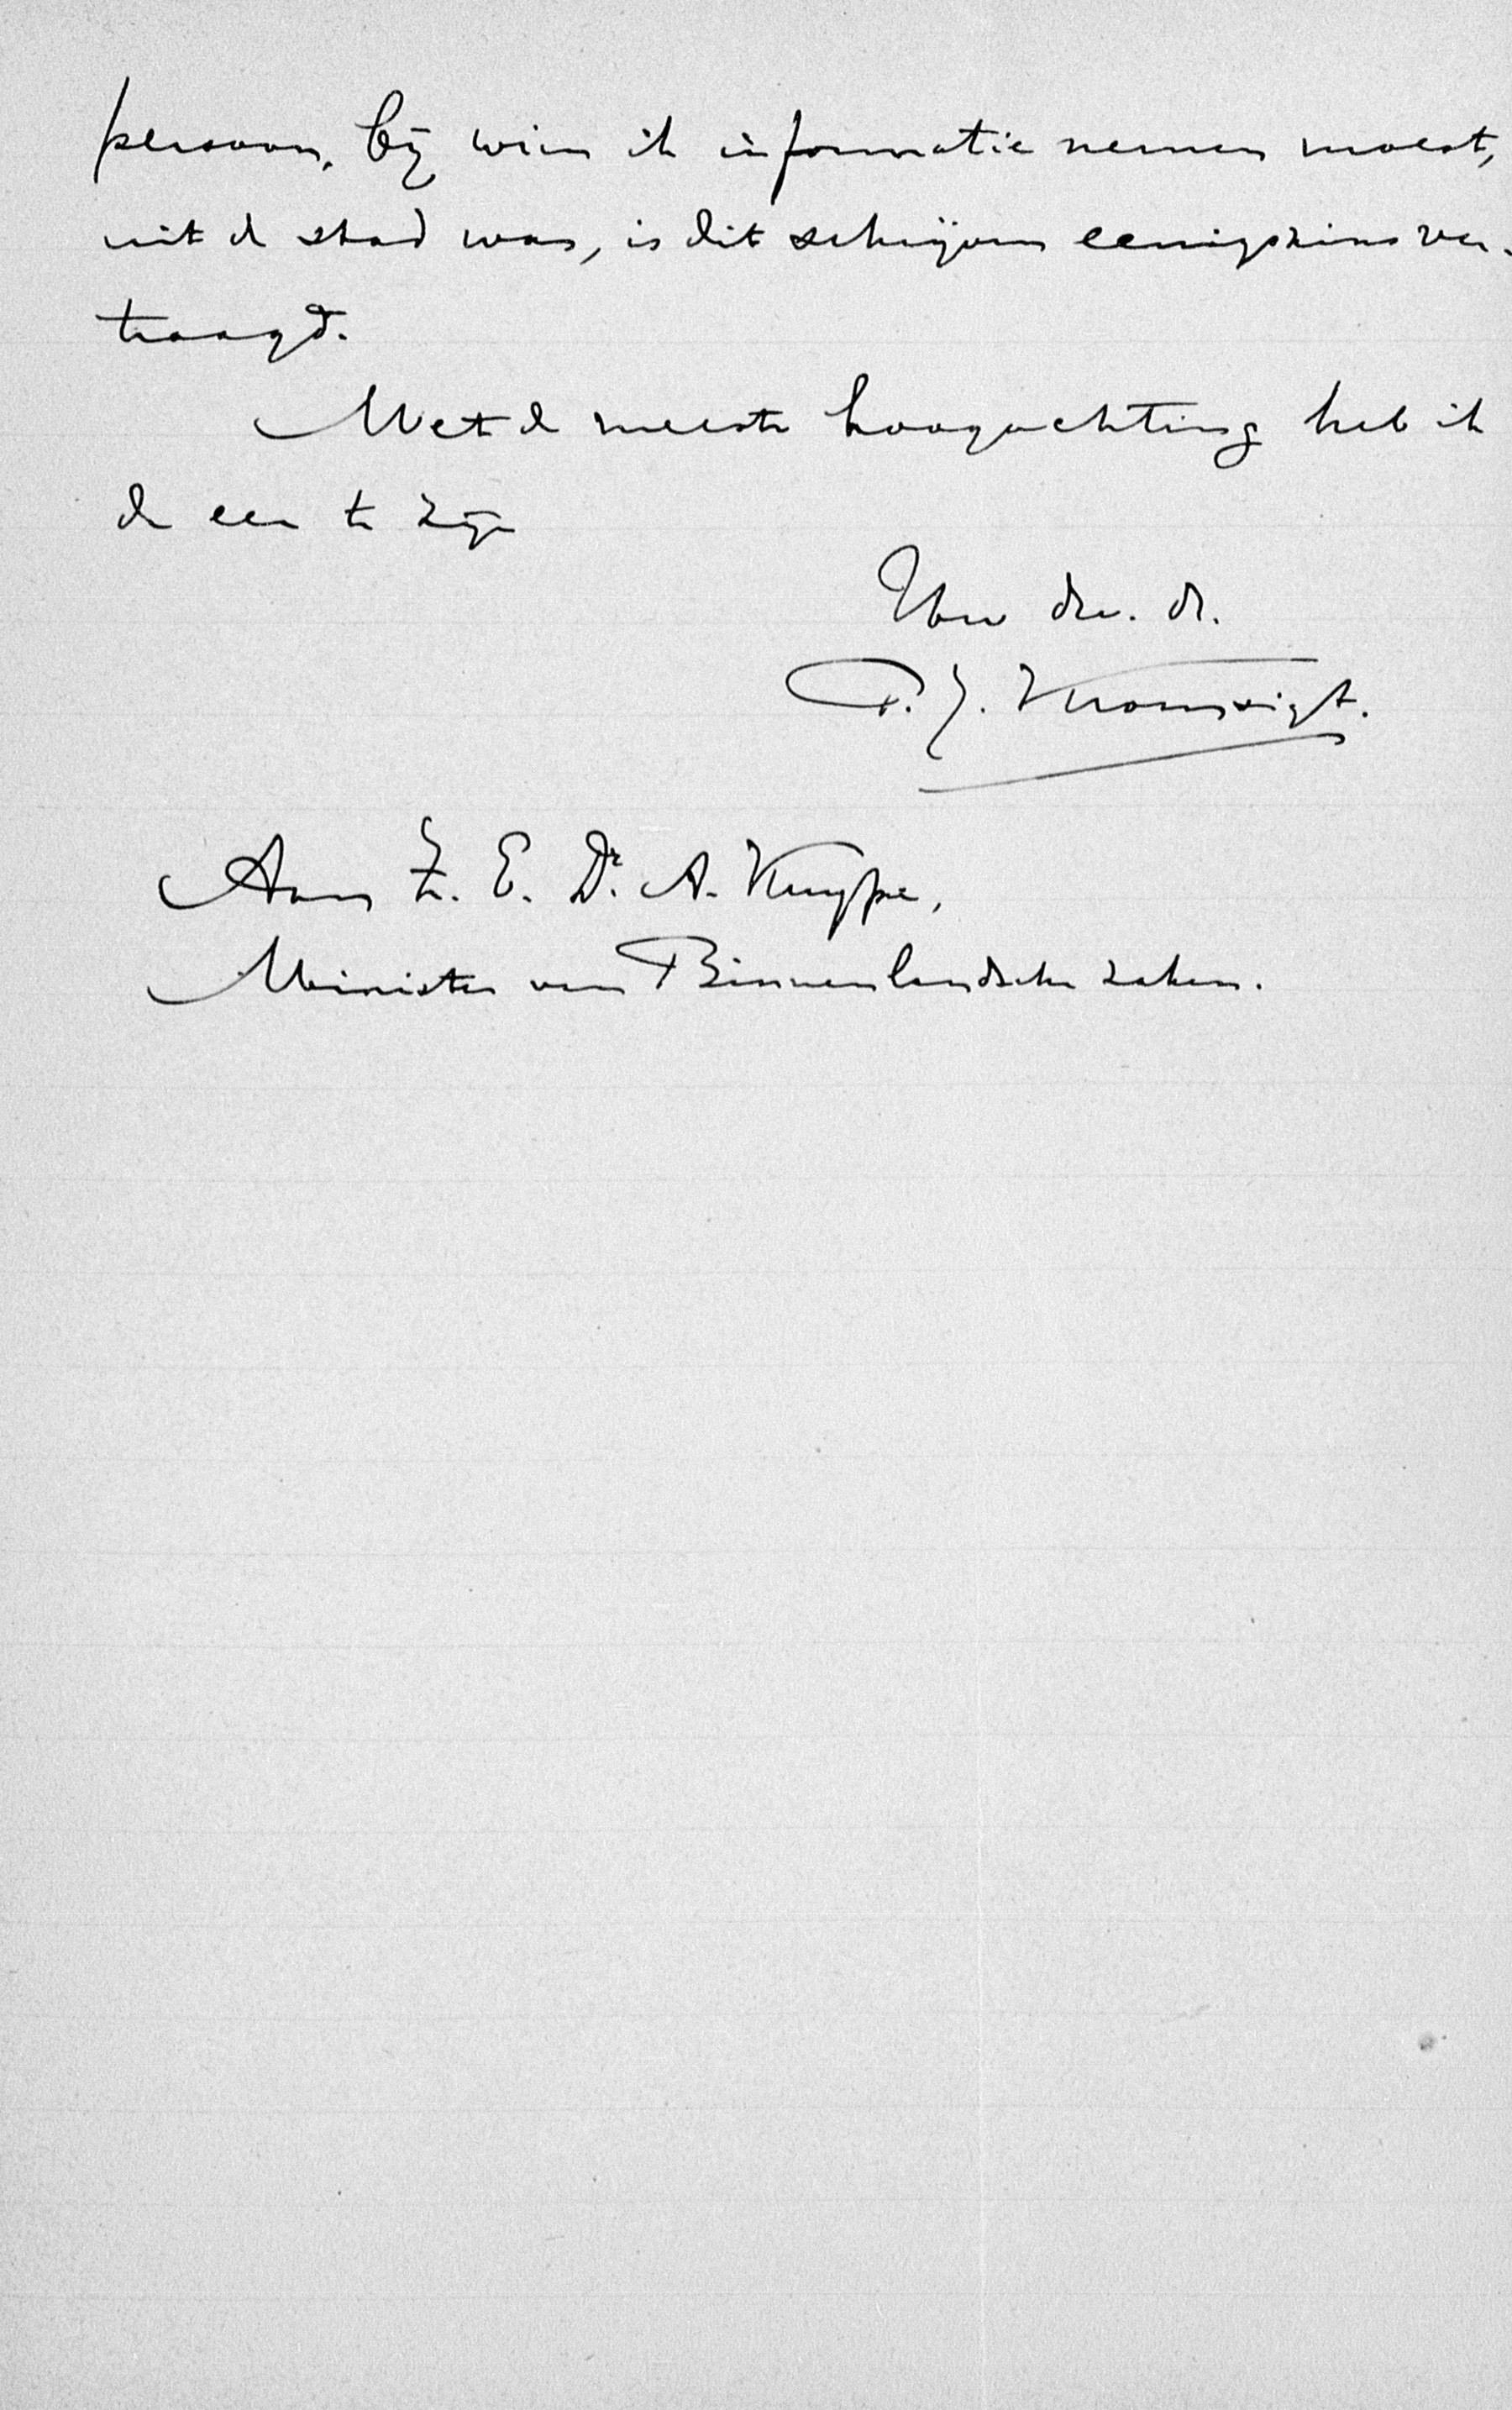 persoon, bij wien ik informatie nemen moest,
uit de stad was, is dit schrijven eenigszins ver-
traagd.
Met de meeste hoogachting heb ik
de eer te zijn
Uw dw. dr.
P. J. Kromsigt.
Aan Z. E. Dr. A. Kuyper,
Minister van Binnenlandsche Zaken.